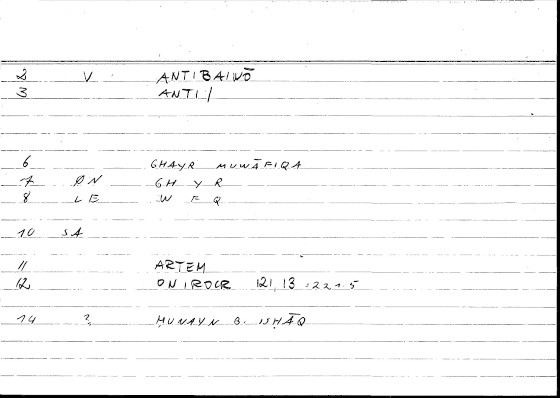 2 V ANTIBAINŌ
3 ANTI/
6 GHAYR MUWĀFIQA
7 ØN GH Y R
8 LE W F Q
10 SA
11 ARTEM
12 ONIROCR 121,13 :221.5
14 ? ḤUNAYN B. ISḤĀQ